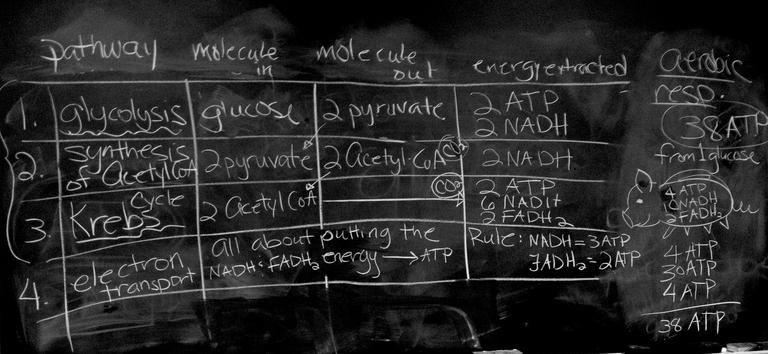 pathway molecule in molecule out energy extracted
1. glycolysis glucose 2 pyruvate 2 ATP
2 NADH
2. synthesis of Acetyl CoA 2 pyruvate 2 Acetyl-CoA CO2 2 NADH
3. Krebs cycle 2 Acetyl CoA CO2 2 ATP
6 NADH
2 FADH2
4. electron transport all about putting the
NADH & FADH2 energy → ATP
Rule: NADH = 3ATP
FADH2 = 2ATP
aerobic
resp.
38 ATP
from 1 glucose
4 ATP
NADH
2 FADH2
4 ATP
30 ATP
4 ATP
38 ATP